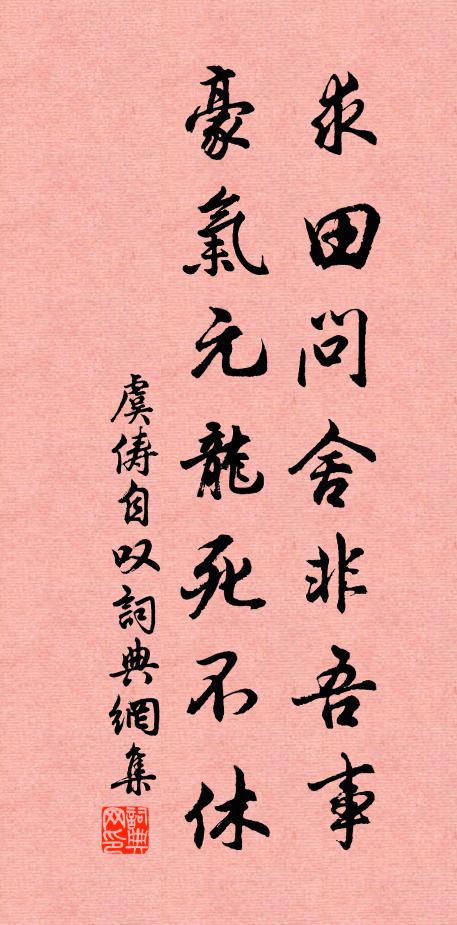 求田問舍非吾事
豪氣元龍死不休
虞儔自叹詞典網集
詞典网印